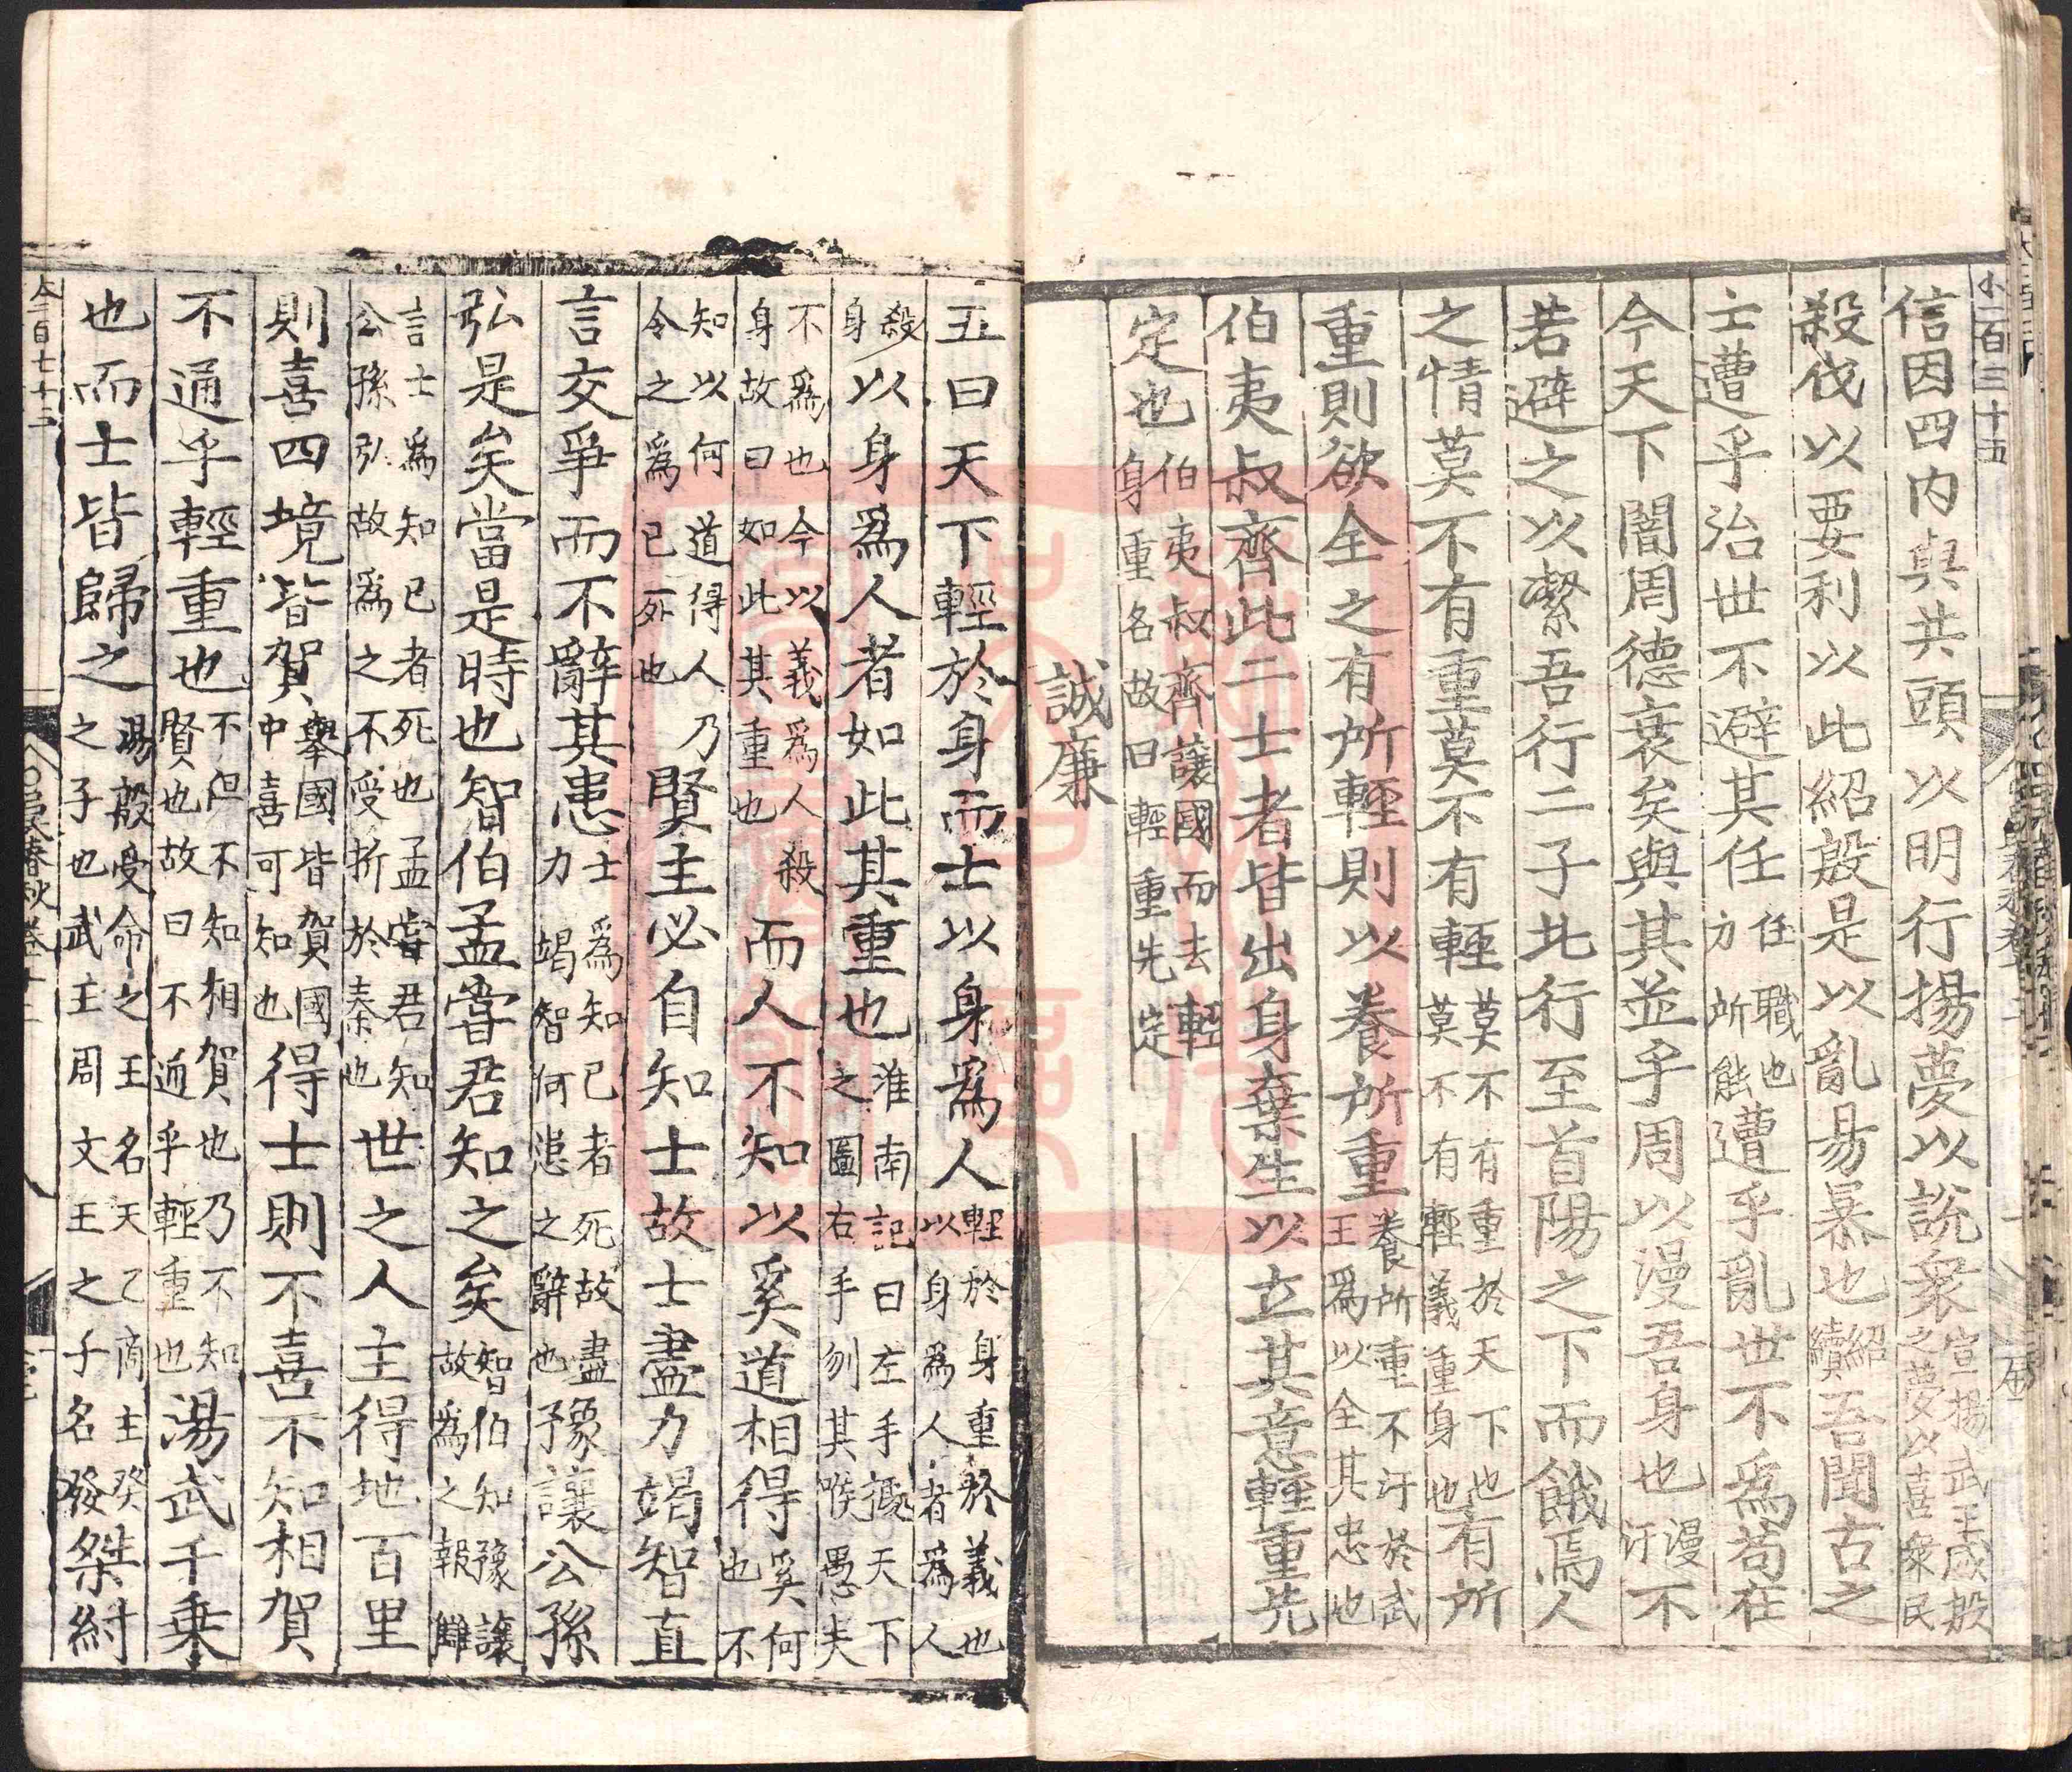 小二百三十五
信因四内與共頭以明行揚夢以説衆宣揚武王威殷之夢以喜衆民
殺伐以要利以此紹殷是以亂易暴也紹續吾聞古之
士遭乎治世不避其任任職也方所能遭乎亂世不爲苟在
今天下闇周德衰矣與其並乎周以漫吾身也漫汙不
若避之以潔吾行二子北行至首陽之下而餓焉人
之情莫不有重莫不有輕莫不有重於天下也莫不有輕義重身也有所
重則欲全之有所輕則以養所重養所重不汙於武王爲以全其忠也
伯夷叔齊此二士者皆出身棄生以立其意輕重先
定也伯夷叔齊讓國而去輕身重名故曰輕重先定
誠廉
五曰天下輕於身而士以身爲人輕於身重於義也以身爲人者爲人
殺身以身爲人者如此其重也淮南記曰左手據天下之圖右手刎其喉愚夫
不爲也今以義爲人殺身故曰如此其重也而人不知以奚道相得奚何也不
知以何道得人乃令之爲己死也賢主必自知士故士盡力竭智直
言交爭而不辭其患士爲知己者死故盡力竭智何患之辭也豫讓公孫
弘是矣當是時也智伯孟嘗君知之矣智伯知豫讓故爲之報讎
言士爲知己者死也孟嘗君知公孫弘故爲之不受折於秦也世之人主得地百里
則喜四境皆賀舉國皆賀國中喜可知也得士則不喜不知相賀
不通乎輕重也不但不知相賀也乃不知賢也故曰不通乎輕重也湯武千乗
也而士皆歸之湯殷受命之王名天乙商主癸之子也武王周文王之子名發桀紂
仐二百七十二
呂氏春秋卷十二